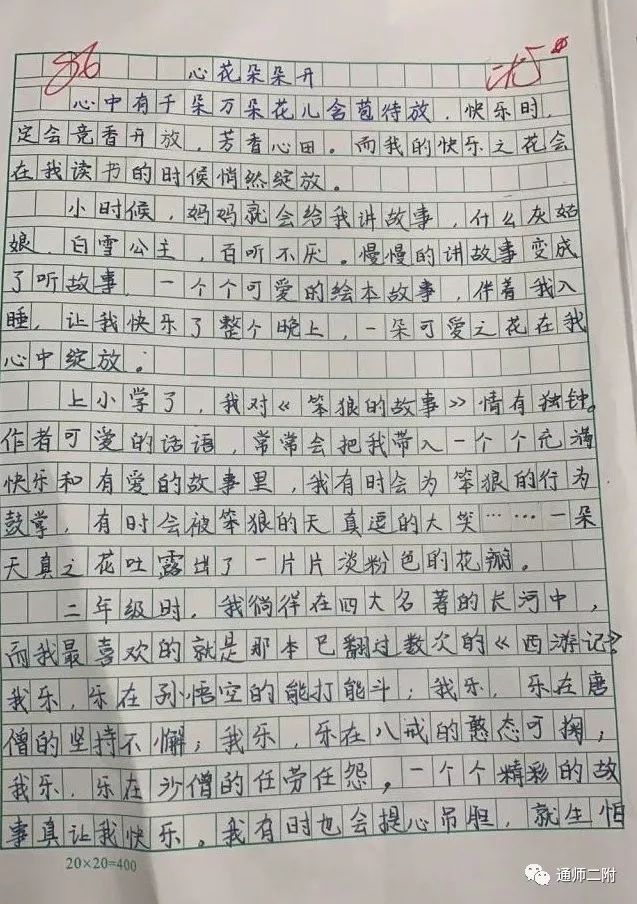 心花朵朵开
心中有千朵万朵花儿含苞待放，快乐时，
定会竞香开放，芳香心田。而我的快乐之花会
在我读书的时候悄然绽放。
小时候，妈妈就会给我讲故事，什么灰姑
娘、白雪公主，百听不厌。慢慢的讲故事变成
了听故事，一个个可爱的绘本故事，伴着我入
睡，让我快乐了整个晚上，一朵可爱之花在我
心中绽放。
上小学了，我对《笨狼的故事》情有独钟。
作者可爱的话语，常常会把我带入一个个充满
快乐和有爱的故事里，我有时会为笨狼的行为
鼓掌，有时会被笨狼的天真逗的大笑……一朵
天真之花吐露出了一片片淡粉色的花瓣。
二年级时，我徜徉在四大名著的长河中，
而我最喜欢的就是那本已翻过数次的《西游记》
我乐，乐在孙悟空的能打能斗；我乐，乐在唐
僧的坚持不懈；我乐，乐在八戒的憨态可掬；
我乐，乐在沙僧的任劳任怨，一个个精彩的故
事真让我快乐。我有时也会提心吊胆，就生怕
20×20=400
通师二附